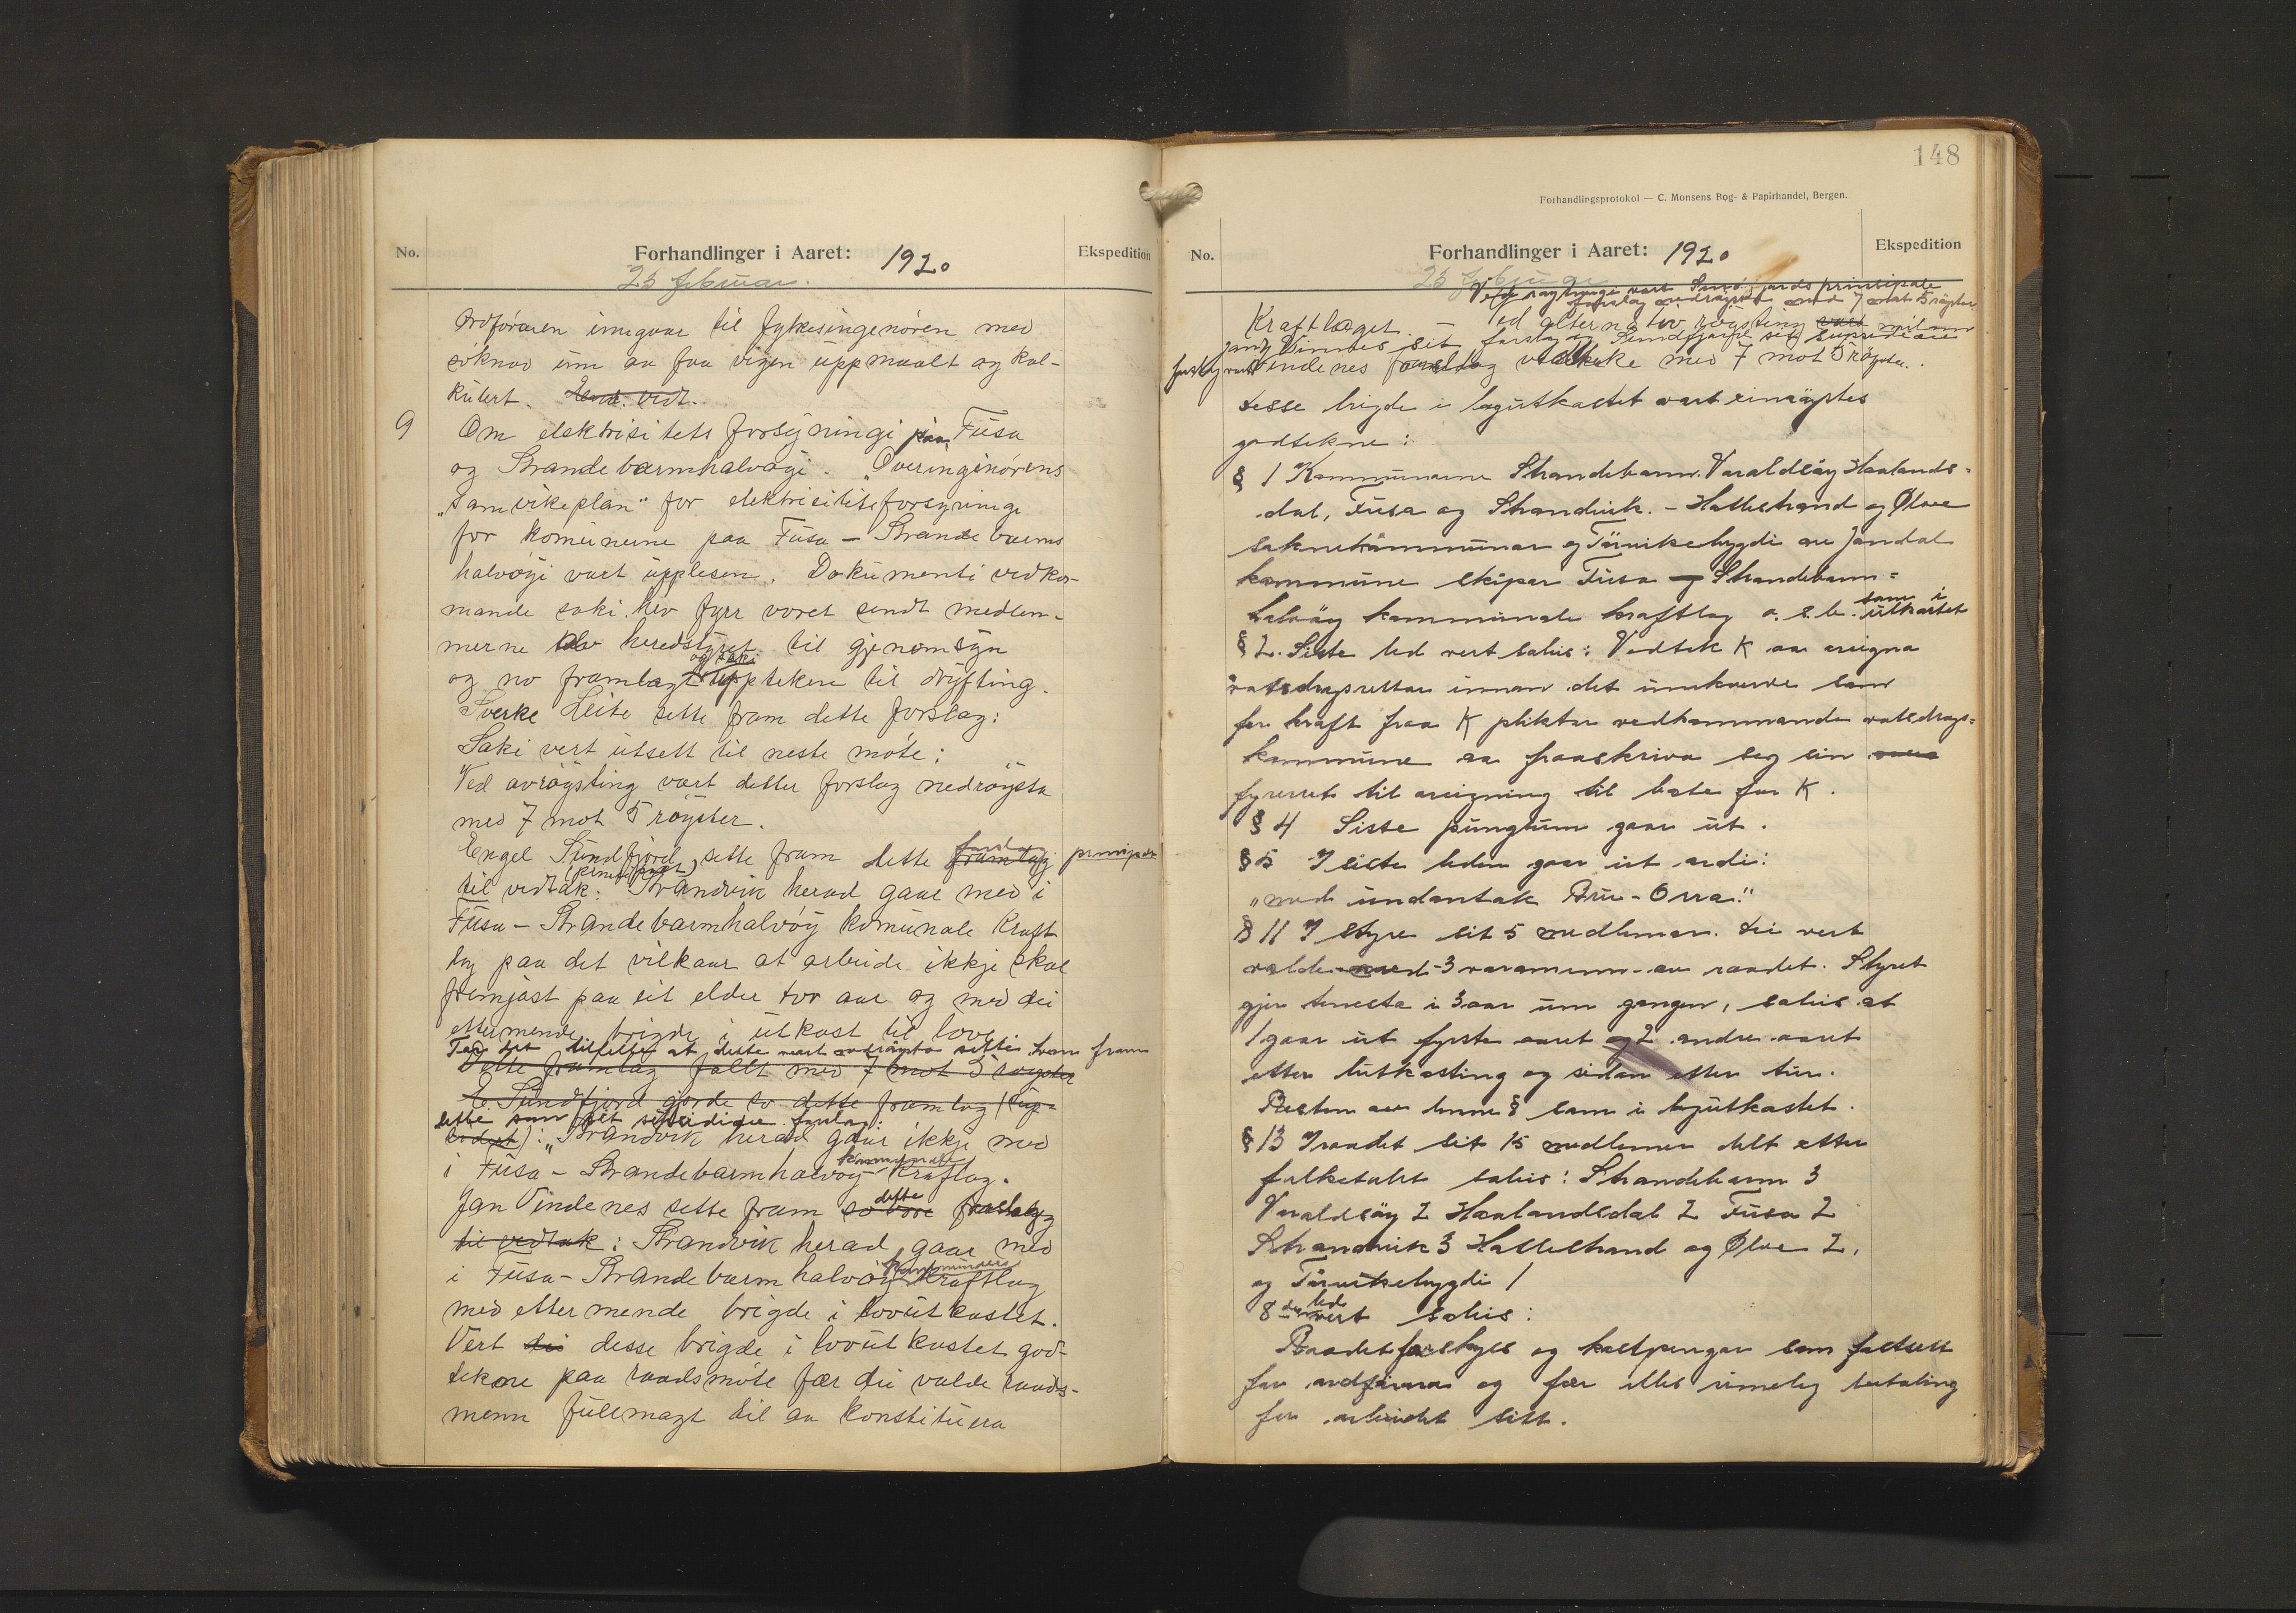 No.
Forhandlinger i Aaret: 1920
Ekspedition
25 februar.
Ordføraren inngaar til fylkesingenøren med
søknad um aa faa vigen uppmaalt og kal-
kulert. Einr. vedt.
9 Om elektrisitets forsyningi paa Fusa
og Strandebarmhalvøgi. Overinginørens
"samvikeplan" for elektrisitetsforsyninge
for komunerne paa Fusa - Strandebarms
halvøyi vart upplesen. Dokumenti vedko-
mande saki hev fyrr voret sendt medlem-
merne av heredstyret til gjenomsyn
og saki
og no framlagt uppteken til drøfting.
Sverke Leite sette fram dette forslag:
Saki vert utsett til neste møte;
Ved avrøysting vart dette forslag nedrøysta
med 7 mot 5 røyster.
Engel Sundfjord sette fram dette framlag forslag prinsipale
(prinsipalt)
til vedtak: Strandvik herad gaar med i
Fusa - Strandebarmhalvøy komunale Kraft
lag paa det vilkaar at arbeide ikkje skal
fremjast paa eit elder tvo aar og med dei
ettermende brigde i utkast til love
For det tilfelle at dette vart nedrøysta sette han fram
Dette framlag fallt med 7 mot 5 røyster
E. Sundfjord gjorde so dette framlag (sup-
dette som sit subsidiære forslag:
: "Strandvik herad gaar ikkje med
kommunale
i Fusa - Strandebarmhalvøy Kraftlag.
Jan Vindenes sette fram dette forslag
til vedtak: Strandvik herad gaar med
kommunale
i Fusa - Strandebarmhalvøy Kraftlag
med ettermende brigde i lovutkastet.
Vert dei desse brigde i lovutkastet god-
tekne paa raadsmøte fær dei valde raads-
menn fullmagt til aa konstituera
148
Forhandlingsprotokol — C. Monsens Bog- & Papirhandel, Bergen.
No.
Forhandlinger i Aaret: 1920
Ekspedition
25 februar
Ved røystinge vart Sundfjords prinsipale
forslag nedrøysta med 7 mot 5 røyster
Kraftlaget. - Ved alternativ røysting vart millom
Jan Vinnes sit forslag og Sundfjord sit
forslag vart Vindenes forslag vedteke med 7 mot 5 røyster.
Desse brigde i lagutkastet vart einrøystes
godtekne:
§ 1 Kommunarne Strandebarm. Varaldsøy Haalands-
dal, Fusa og Strandvik. - Hatlestrand og Ølve
soknekommunar og Tørvikebygdi av Jondal
kommune skipar Fusa og Strandebarm=
som i
halvøy kommunale kraftlag o. s. b. utkastet
§ 2. Siste led vert soleis: Vedtek K aa areigna
vatsdragsrettar innan det umkverve som
fær kraft fraa K pliktar vedkommande vatsdrags=
kommune aa fraaskriva seg sin
fyrerett til areigning til bate for K.
§ 4 Siste pungtum gaar ut.
§ 5 I siste leden gaar ut ordi:
"med undantak Bru-Orra."
§ 11 I styre sit 5 medlemer. Dei vert
valde med 3 varamenn av raadet. Styret
gjer tenesta i 3 aar um gangen, soleis at
1 gaar ut fyrste aaret og 2 andre aaret
etter lutkasting og sidan etter tur.
Resten av denne § som i lagutkastet.
§ 13 I raadet sit 15 medlemer delt etter
folketalet soleis: Strandebarm 3
Varaldsøy 2 Haalandsdal 2 Fusa 2
Strandvik 3 Hatlestrand og Ølve 2,
og Tørvikebygdi 1
8de led vert soleis:
Raadet fær skyss og kostpengar som fastsett
for ordførara og fær elles rimeleg betaling
for arbeidet sitt.